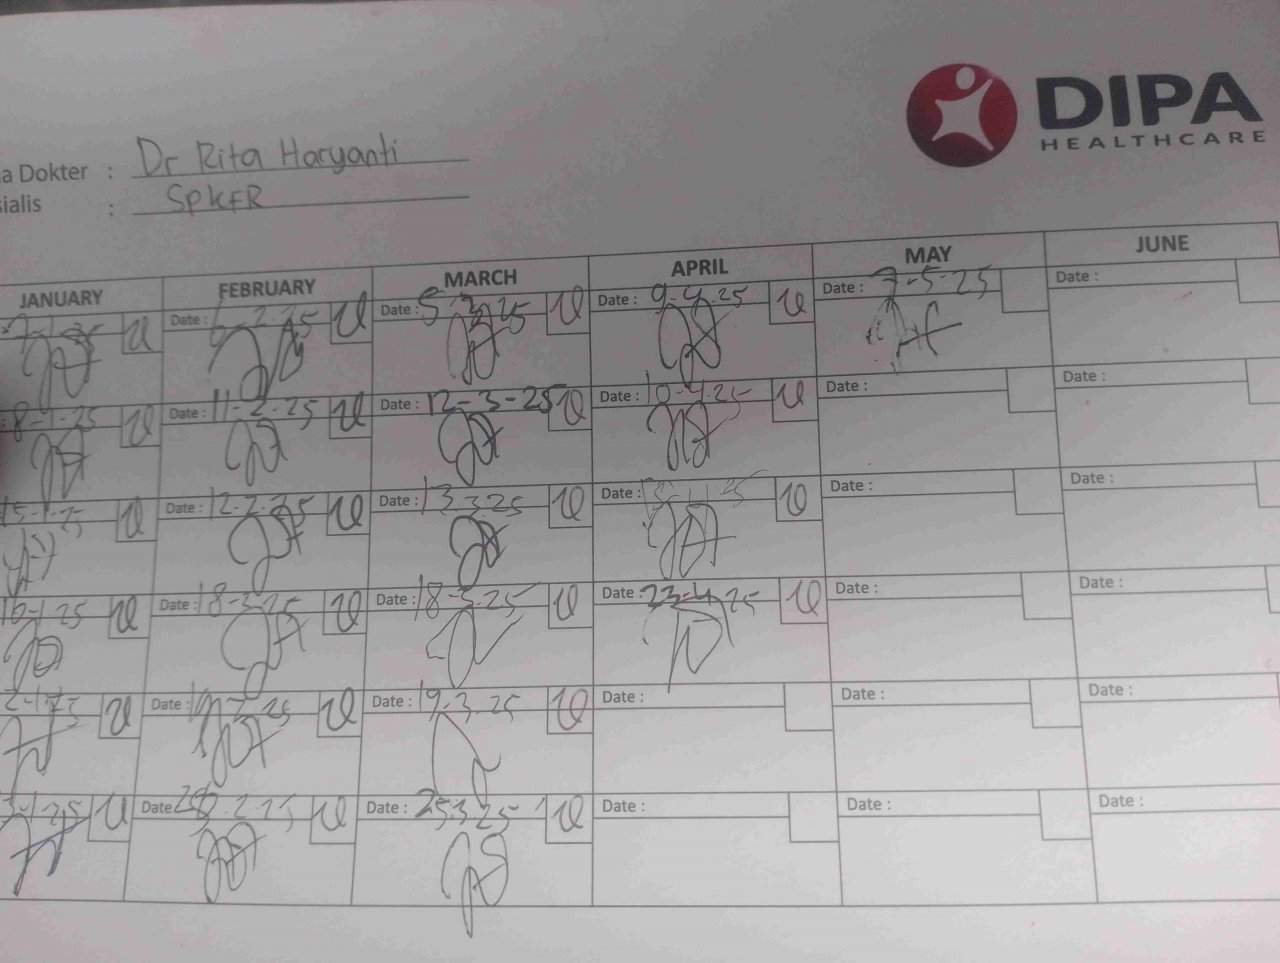 DIPA
HEALTHCARE
a Dokter : Dr Rita Haryanti
sialis : SpKFR
JANUARY FEBRUARY MARCH APRIL MAY JUNE
Date : Date : 5-3-25 Date : 9-4-25 Date : 7-5-25 Date :
8-1-25 Date : 11-2-25 Date : 12-3-25 Date : 10-4-25 Date : Date :
15-1-25 Date : 12-2-25 Date : 13.3.25 Date : Date : Date :
16-1-25 Date : 18-3-25 Date : 18-3-25 Date : 23-4-25 Date : Date :
Date : Date : 19.3.25 Date : Date : Date :
Date Date : 25.3.25 Date : Date : Date :